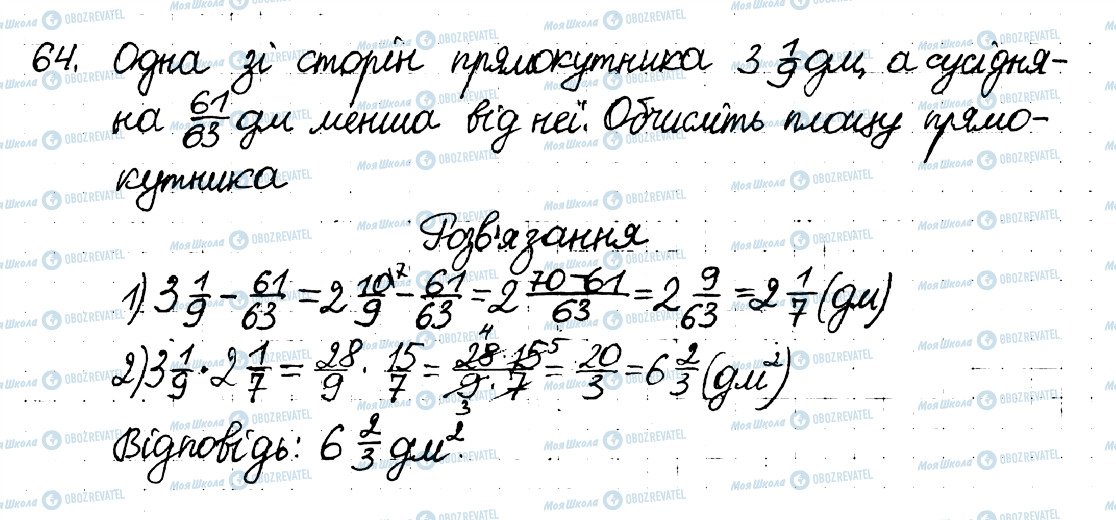 64. Одна зі сторін прямокутника 3 1/9 дм, а сусідня-
на 61/63 дм менша від неї. Обчисліть площу прямо-
кутника
Розв'язання
1) 3 1/9 - 61/63 = 2 10/9 ^7 - 61/63 = 2 (70-61)/63 = 2 9/63 = 2 1/7 (дм)
2) 3 1/9 · 2 1/7 = 28/9 · 15/7 = (28 ^4 · 15 ^5)/(9 _3 · 7) = 20/3 = 6 2/3 (дм²)
Відповідь: 6 2/3 дм².